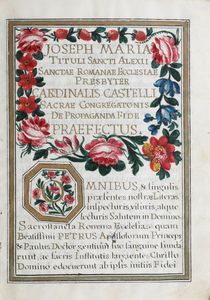 JOSEPH MARIA
TITULI SANCTI ALEXII
SANCTAE ROMANAE ECCLESIAE
PRESBYTER
CARDINALIS CASTELLI
SACRAE CONGREGATONIS
DE PROPAGANDA FIDE
PRAEFECTUS.
OMNIBUS, & singulis
præsentes nostras Literas
inspecturis, visuris, atque
lecturis Salutem in Domino
Sacrosancta Romana Ecclesia, quam
Beatissimi PETRUS Apostolorum Princeps
& Paulus Doctor gentium suo sanguine funda
runt, ac sacris Institutis vivente Christo
Domino edocuerunt ab ipsis initiis Fidei